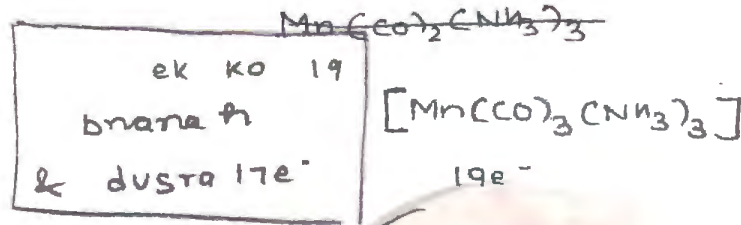 Mn(CO)2(NH3)3
ek ko 19
bnana h
& dusra 17e-
[Mn(CO)3(NH3)3]
19e-